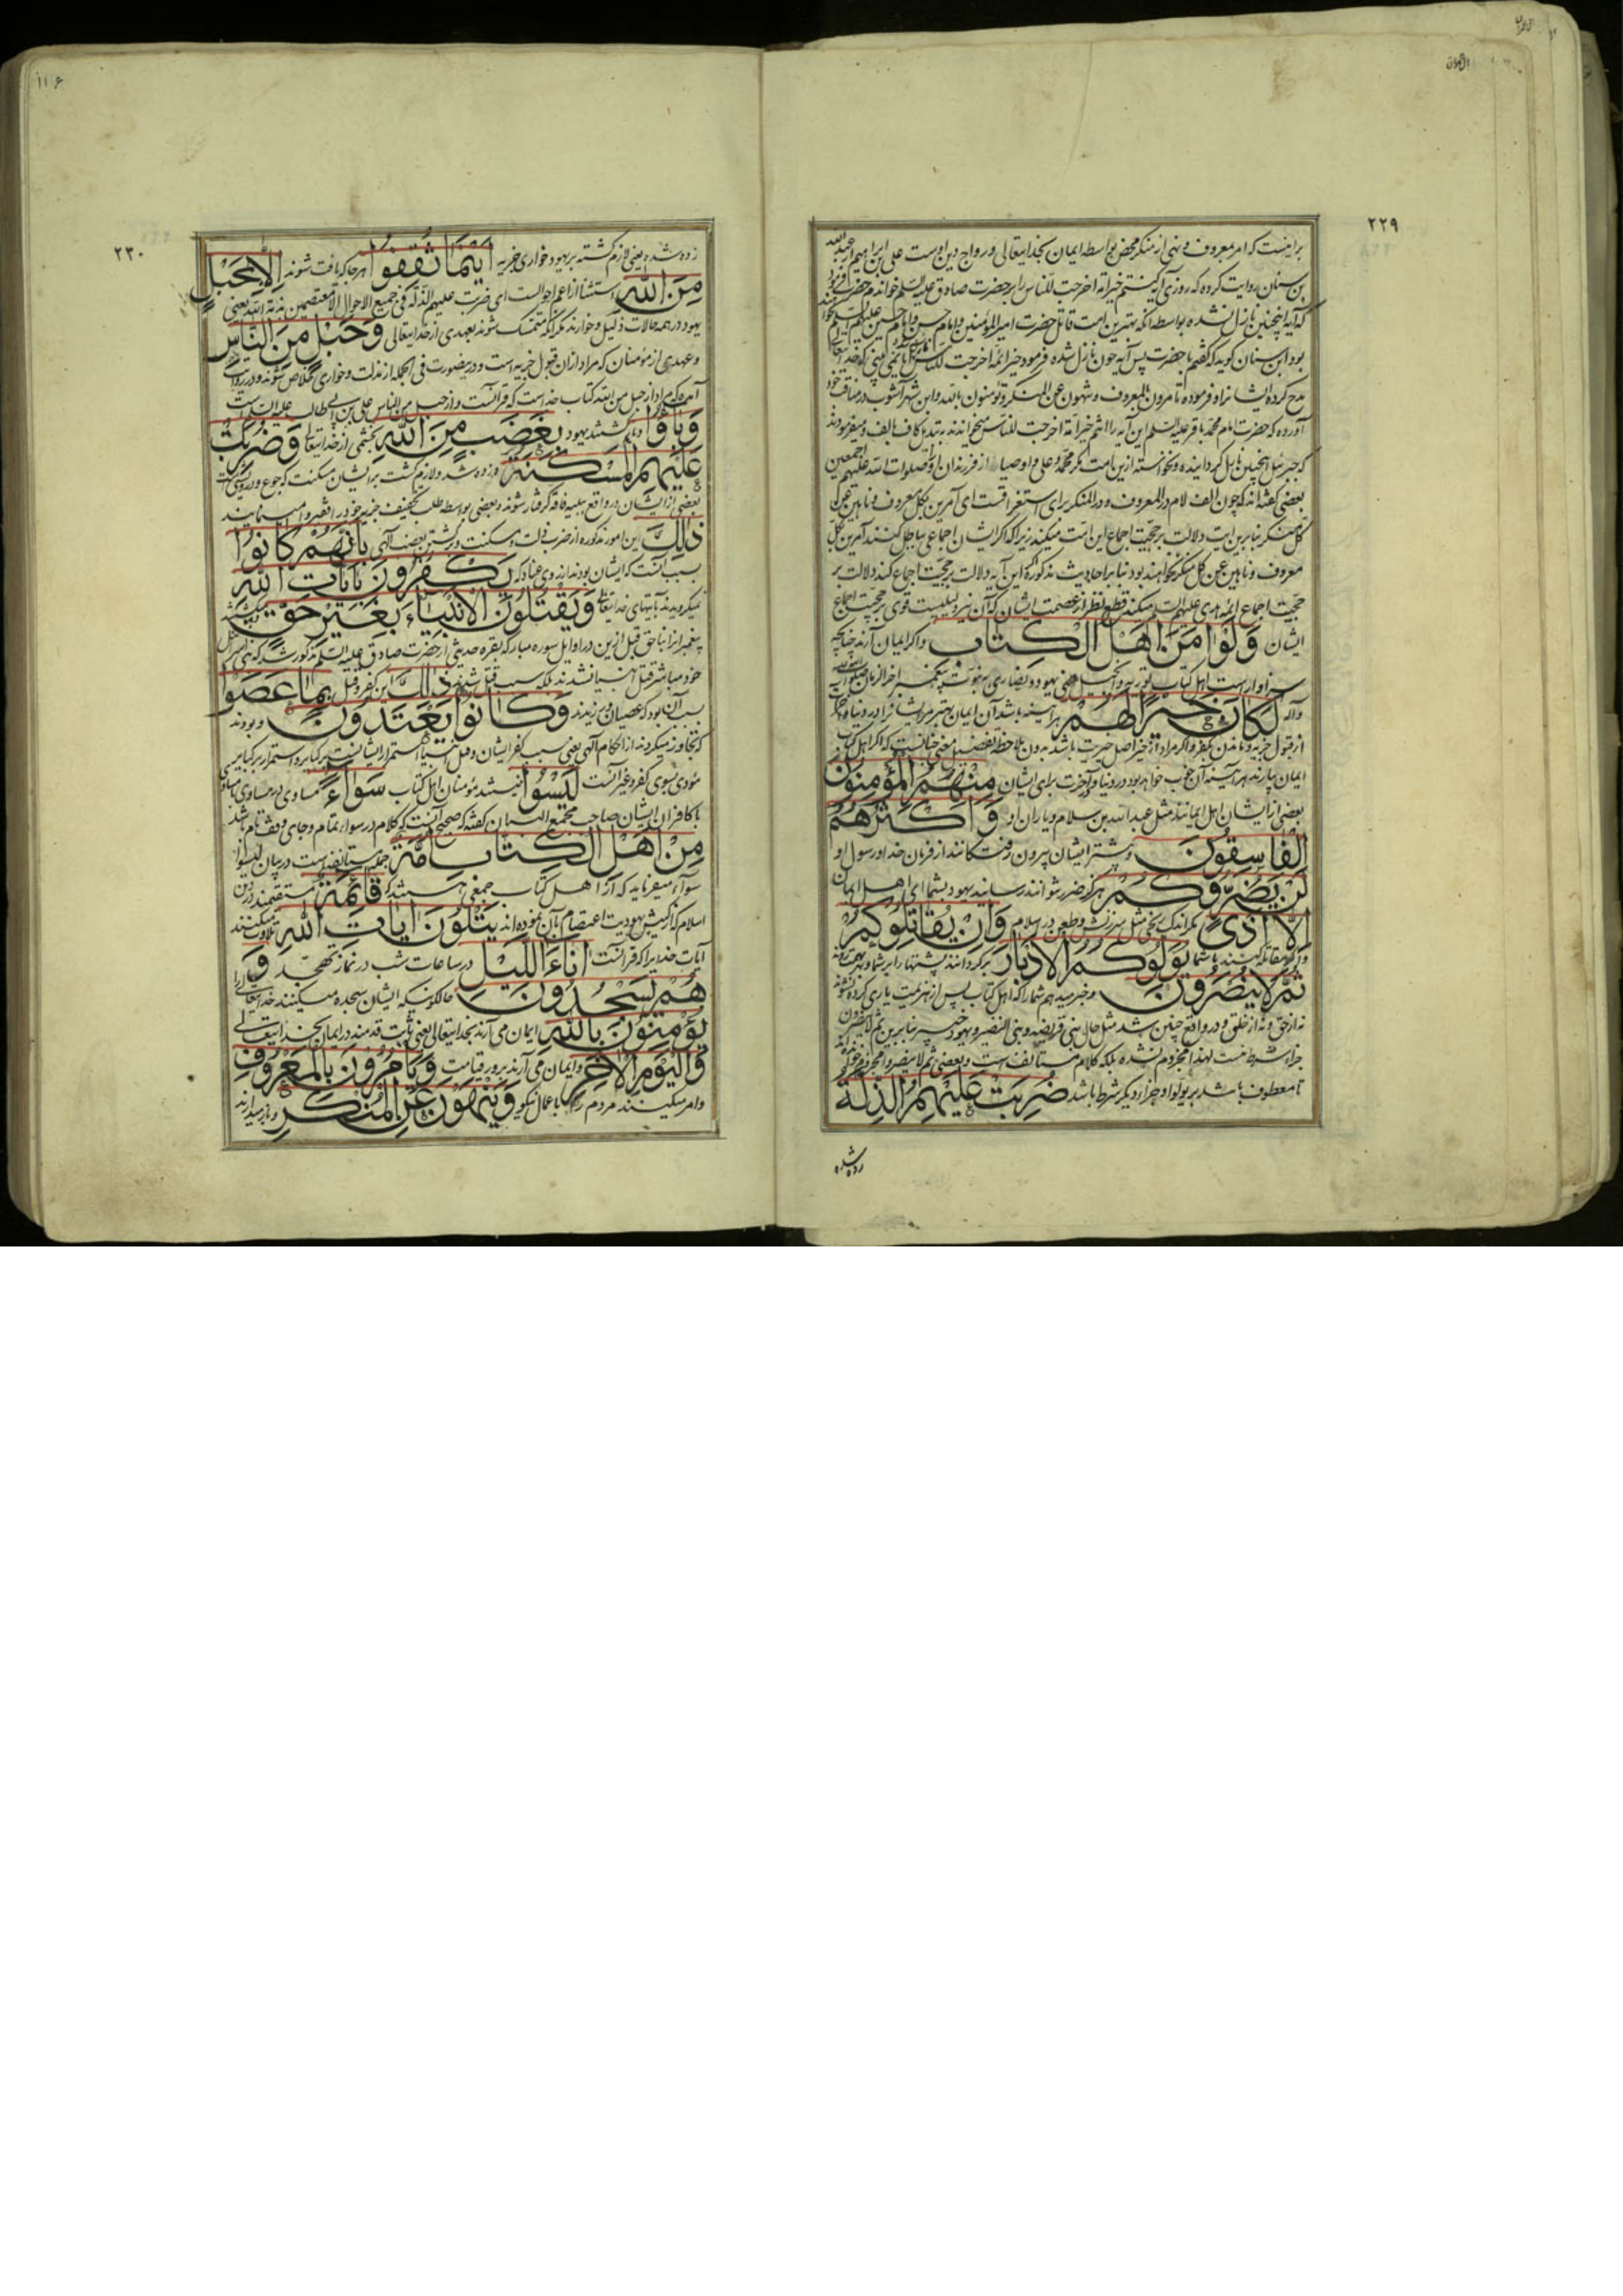 ۲۲۹
برامنست که امر بمعروف و نهی از منکر محض بواسطه ایمان بخدایتعالی و رواج دین اوست علی بن ابراهیم از عبدالله
بن سنان روایت کرده که روزی آیه کنتم خیر امة اخرجت للناس را بر حضرت صادق علیه السلم خواندم حضرت فرمود
که آیه اینچنین نازل نشده بواسطه آنکه بهترین امت قاتل حضرت امیر المؤمنین و امام حسن و امام حسین علیهم السلم
بود ابن سنان کوید که کفتم با حضرت پس آیه چون نازل شده فرمود خیر ائمة اخرجت للناس نمی بینی که خدایتعالی
مدح کرده ایشانرا و فرموده تامرون بالمعروف و تنهون عن المنکر و تؤمنون بالله و ابن شهر آشوب در مناقب خود
آورده که حضرت امام محمد باقر علیه السلم این آیه را انتم خیر امة اخرجت للناس میخواندند
که جبرئیل اینچنین نازل کردانیده و نخواسته ازین امت مکر محمد و علی و اوصیا از فرزندان او صلوات الله علیهم اجمعین
بعضی کفته اند که چون الف لام در المعروف و در المنکر برای استغراقست ای آمرین بکل معروف و ناهین عن
کل منکر بنا برین آیت دلالت بر حجیت اجماع این امت میکند زیرا که اکر ایشان اجماعی بباطل کنند آمرین بکل
معروف و ناهین عن کل منکر نخواهند بود بنا بر احادیث مذکوره این آیه دلالت بر حجیت اجماع کند دلالت بر
حجیت اجماع ائمه هدی علیهم السلم میکند قطع نظر از عصمت ایشان که آن نیز دلیلست قوی بر حجیت اجماع
ایشان وَلَوْ اٰمَنَ اَهْلُ الْكِتَابِ و اکر ایمان آرند چنانچه
سزاوار است اهل کتاب توریه و انجیل یعنی یهود و نصاری به نبوت پیغمبر آخر الزمان صلوات الله علیه
وآله لَكَانَ خَيْرًا لَهُمْ هر آینه باشد آن ایمان بهتر مر ایشانرا در دنیا و آخرت
از قبول جزیه و ماندن بکفر و اکر مراد از خیر اصل خیریت باشد بدون ملاحظه تفضیل معنی چنانست که اکر اهل کتاب
ایمان بیارند هر آینه آن خوب خواهد بود در دنیا و آخرت برای ایشان مِنْهُمُ الْمُؤْمِنُونَ
بعضی از ایشان اهل ایمانند مثل عبد الله بن سلام و یاران او وَاَكْثَرُهُمُ
الْفَاسِقُونَ و بیشتر ایشان بیرون رفتکانند از فرمان خدا و رسول او
لَنْ يَضُرُّوكُمْ هرکز ضرر نتوانند رسانید یهود بشما ای اهل ایمان
اِلَّا اَذًى مکر اندک رنجی مثل سرزنش و طعن در اسلام وَاِنْ يُقَاتِلُوكُمْ
و اکر مقاتله کنند با شما يُوَلُّوكُمُ الْاَدْبَارَ برکردانند پشتها را بر شما
ثُمَّ لَا يُنْصَرُونَ و خبر میدهم شما را که اهل کتاب پس از هزیمت یاری کرده نشوند
نه از حق و نه از خلق و در واقع چنین شد مثل حال بنی قریضه و بنی النضیر و یهود خیبر بنا برین ثم لا ینصرون
جزاء شرط نیست لهذا مجزوم نشده بلکه کلام مستانفست و بعضی ثم لا ینصروا مجزوم خوانده اند
تا معطوف باشد بر یولوا و جزاء دیکر شرط باشد ضُرِبَتْ عَلَيْهِمُ الذِّلَّةُ
زده شده
۱۱۶
۲۳۰
زده شده یعنی لازم کشته بر یهود خواری جزیه اَيْنَمَا ثُقِفُوا هر جا که یافت شوند اِلَّا بِحَبْلٍ
مِنَ اللّٰهِ استثنا از اعم احوالست ای ضربت علیهم الذلة فی جمیع الاحوال الا معتصمین بذمة الله یعنی
یهود در همه حالات ذلیل و خوارند مکر آنکه متمسک شوند بعهدی از خدایتعالی وَحَبْلٍ مِنَ النَّاسِ
و عهدی از مؤمنان که مراد ازان قبول جزیه است و درینصورت فی الجمله از مذلت و خواری خلاص شوند و در روایت
آمده که مراد از حبل من الله کتاب خداست که قرآنست و از حبل من الناس علی بن ابی طالب علیه السلم است
وَبَاؤُا و بازکشتند یهود بِغَضَبٍ مِنَ اللّٰهِ بخشمی از خدایتعالی وَضُرِبَتْ
عَلَيْهِمُ الْمَسْكَنَةُ و زده شد و لازم کشت بر ایشان مسکنت که جوع و درویشی است
بعضی از ایشان در واقع ببلیه فاقه کرفتار شوند و بعضی بواسطه طلب تخفیف جزیه خود را فقیر وا مینمایند
ذٰلِكَ این امور مذکوره از ضرب ذلت و مسکنت و کشتن بغضب الهی بِاَنَّهُمْ كَانُوا
بسبب آنست که ایشان بودند از روی عناد که يَكْفُرُونَ بِاٰيَاتِ اللّٰهِ
نمیکرویدند بآیتهای خدایتعالی وَيَقْتُلُونَ الْاَنْبِيَاءَ بِغَيْرِ حَقٍّ و میکشتند
پیغمبرانرا بناحق قبل ازین در اوایل سوره مبارکه بقره حدیثی از حضرت صادق علیه السلم مذکور شد که بنی اسرائیل
خود مباشر قتل انبیا نشدند بلکه سبب قتل شدند ذٰلِكَ این کفر و قتل بِمَا عَصَوْا
بسبب آن بود که عصیان ورزیدند وَكَانُوا يَعْتَدُونَ و بودند
که تجاوز میکردند از احکام الهی یعنی سبب کفر ایشان و قتل انبیا استمرار ایشانست بر کبایر و استمرار بر کبایر
مؤدی بسوی کفر و غیر آنست لَيْسُوا نیستند مؤمنان اهل کتاب سَوَاءً مساوی
با کافران ایشان صاحب مجمع البیان کفته که صحیح آنست که کلام در سواء تمام و جای وقف تام باشد
مِنْ اَهْلِ الْكِتَابِ اُمَّةٌ جمله مستانفه است در بیان لیسوا
سواء میفرماید که از اهل کتاب جمعی هستند که قَائِمَةٌ مستقیمند در دین
اسلام که از کیش یهودیت اعتصام بآن نموده اند يَتْلُونَ اٰيَاتِ اللّٰهِ تلاوت میکنند
آیات خدایرا که قرآنست اٰنَاءَ اللَّيْلِ در ساعات شب در نماز تهجد وَ
هُمْ يَسْجُدُونَ حالکونیکه ایشان سجده میکنند خدایتعالی را
يُؤْمِنُونَ بِاللّٰهِ ایمان می آرند بخدایتعالی یعنی ثابت قدمند در ایمان بخدایتعالی
وَالْيَوْمِ الْاٰخِرِ و ایمان می آرند بروز قیامت وَيَأْمُرُونَ بِالْمَعْرُوفِ
و امر میکنند مردم را باعمال نیکو وَيَنْهَوْنَ عَنِ الْمُنْكَرِ و باز میدارند